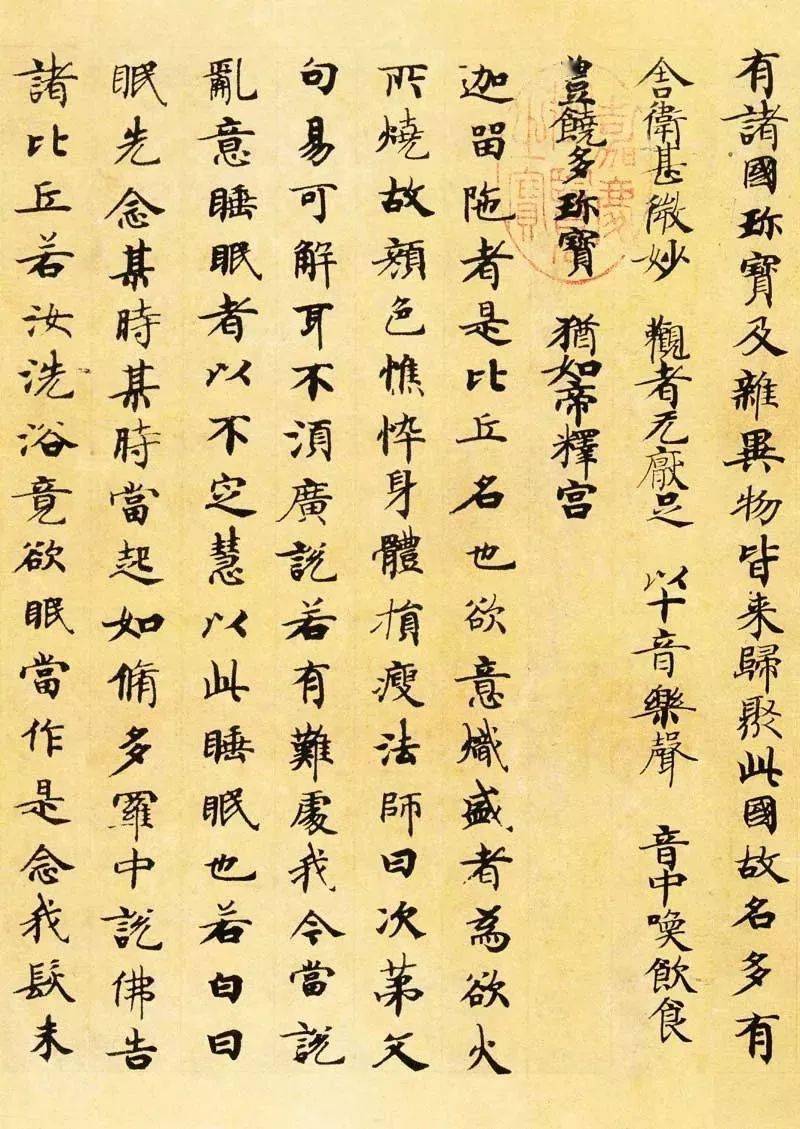 有諸國珎寶及雜異物皆来歸聚此國故名多有
舍衛甚微妙 觀者无厭足 以十音樂聲 音中喚飲食
豐饒多珎寶 猶如帝釋宮
迦留陁者是比丘名也欲意熾盛者為欲火
所燒故顏色憔悴身體損瘦法師曰次第文
句易可解耳不湏廣說若有難處我今當說
亂意睡眠者以不定慧以此睡眠也若白日
眠先念某時某時當起如脩多羅中說佛告
諸比丘若汝洗浴竟欲眠當作是念我髮未